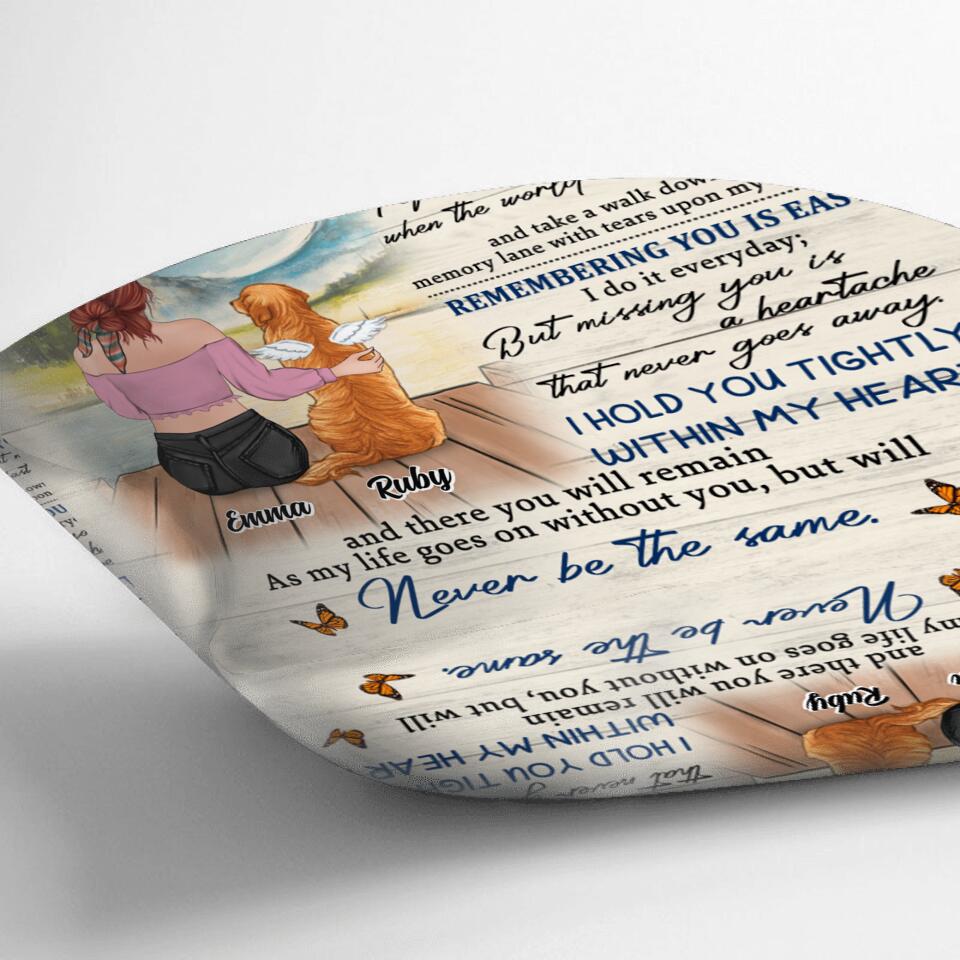 when the world
and take a walk down
memory lane with tears upon my
REMEMBERING YOU IS EAS
I do it everyday;
But missing you is
a heartache
that never goes away.
I HOLD YOU TIGHTLY
WITHIN MY HEAR
and there you will remain
As my life goes on without you, but will
Never be the same.
Emma
Ruby
Never be the same.
my life goes on without you, but will
and there you will remain
WITHIN MY HEAR
I HOLD YOU TIG
that never
Ruby